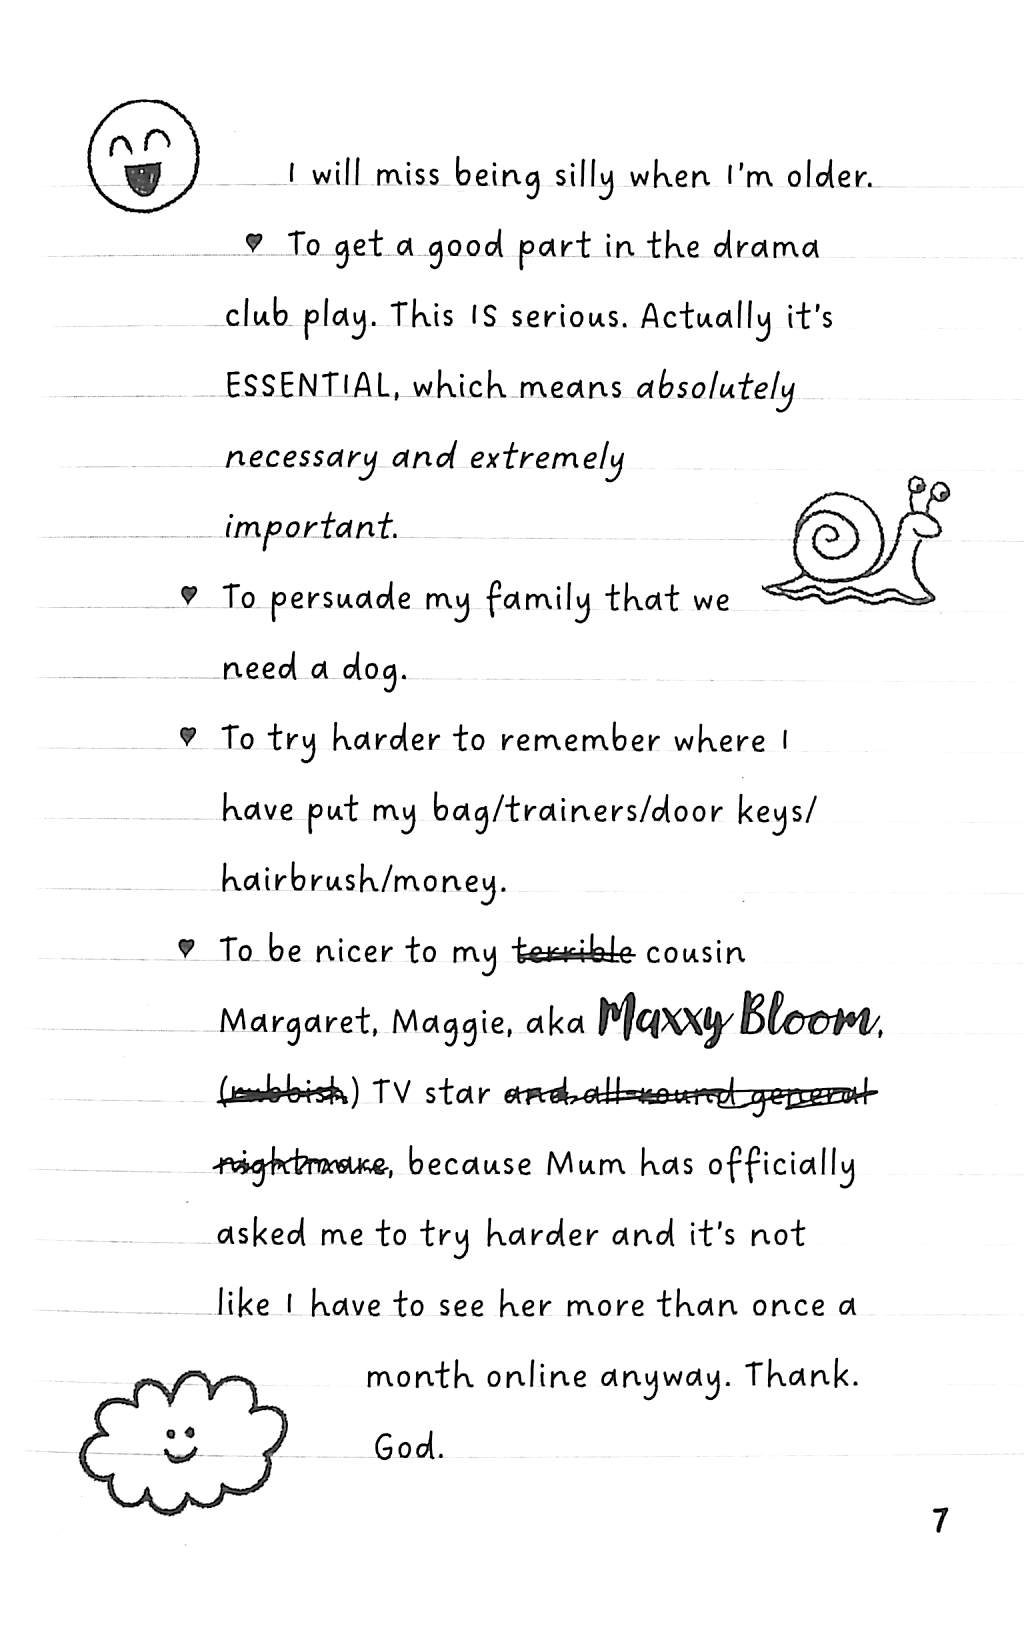 I will miss being silly when I'm older.
♥ To get a good part in the drama
club play. This IS serious. Actually it's
ESSENTIAL, which means absolutely
necessary and extremely
important.
♥ To persuade my family that we
need a dog.
♥ To try harder to remember where I
have put my bag/trainers/door keys/
hairbrush/money.
♥ To be nicer to my terrible cousin
Margaret, Maggie, aka Maxxy Bloom,
(rubbish) TV star and all-round general
nightmare, because Mum has officially
asked me to try harder and it's not
like I have to see her more than once a
month online anyway. Thank.
God.
7